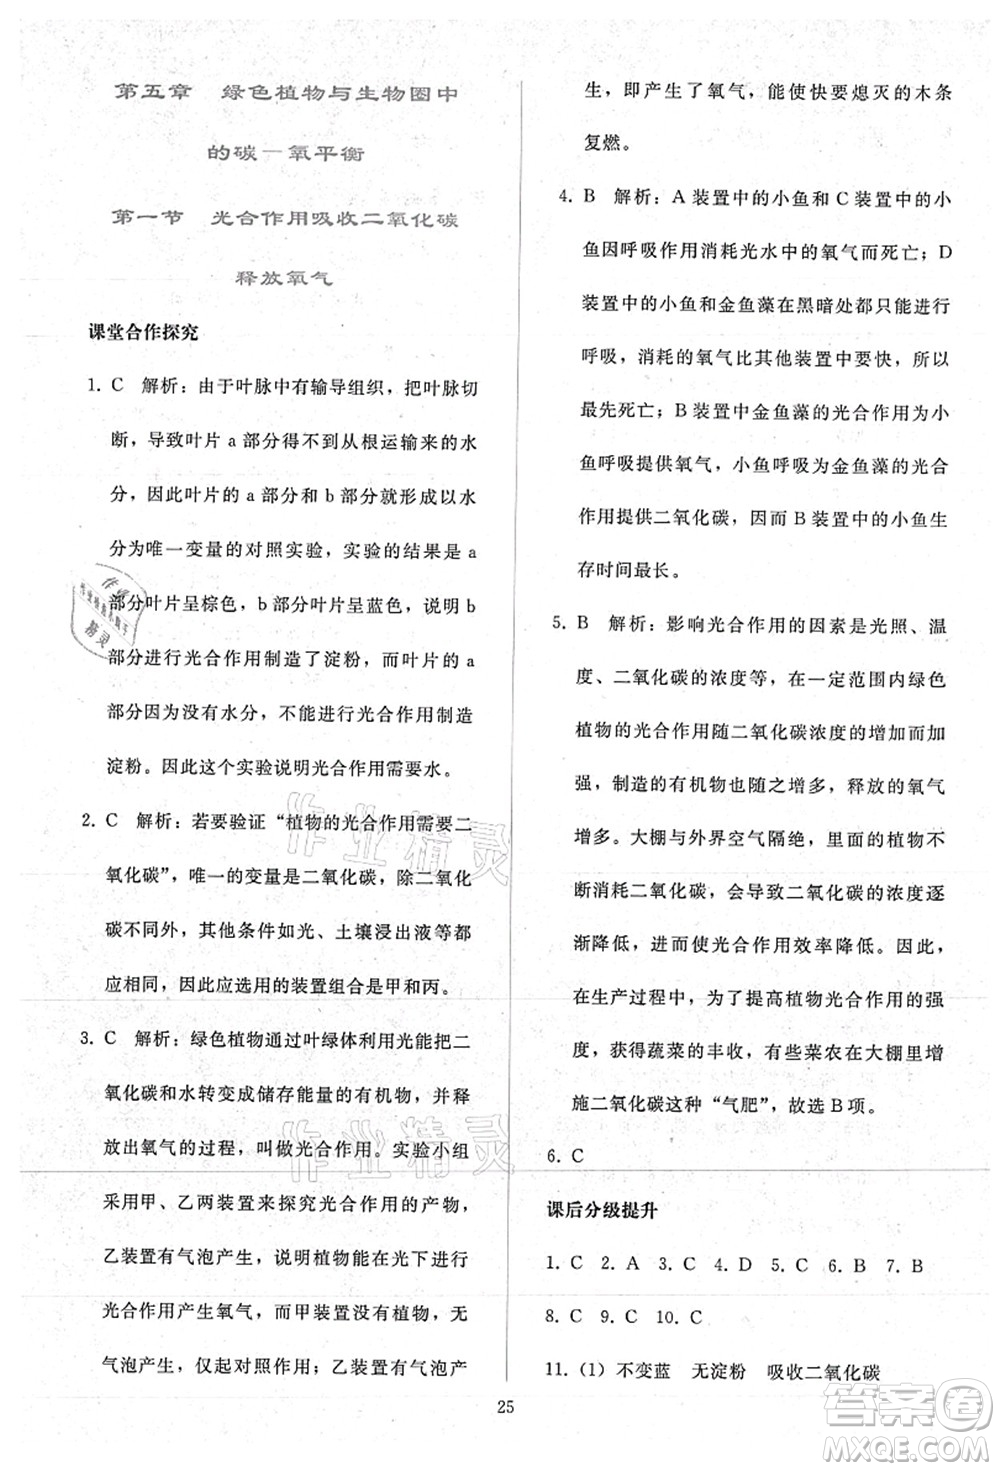 第五章　绿色植物与生物圈中
的碳－氧平衡
第一节　光合作用吸收二氧化碳
释放氧气
课堂合作探究
1. C　解析：由于叶脉中有输导组织，把叶脉切
断，导致叶片 a 部分得不到从根运输来的水
分，因此叶片的 a 部分和 b 部分就形成以水
分为唯一变量的对照实验，实验的结果是 a
部分叶片呈棕色，b 部分叶片呈蓝色，说明 b
部分进行光合作用制造了淀粉，而叶片的 a
部分因为没有水分，不能进行光合作用制造
淀粉。因此这个实验说明光合作用需要水。
2. C　解析：若要验证“植物的光合作用需要二
氧化碳”，唯一的变量是二氧化碳，除二氧化
碳不同外，其他条件如光、土壤浸出液等都
应相同，因此应选用的装置组合是甲和丙。
3. C　解析：绿色植物通过叶绿体利用光能把二
氧化碳和水转变成储存能量的有机物，并释
放出氧气的过程，叫做光合作用。实验小组
采用甲、乙两装置来探究光合作用的产物，
乙装置有气泡产生，说明植物能在光下进行
光合作用产生氧气，而甲装置没有植物，无
气泡产生，仅起对照作用；乙装置有气泡产
生，即产生了氧气，能使快要熄灭的木条
复燃。
4. B　解析：A 装置中的小鱼和 C 装置中的小
鱼因呼吸作用消耗光水中的氧气而死亡；D
装置中的小鱼和金鱼藻在黑暗处都只能进行
呼吸，消耗的氧气比其他装置中要快，所以
最先死亡；B 装置中金鱼藻的光合作用为小
鱼呼吸提供氧气，小鱼呼吸为金鱼藻的光合
作用提供二氧化碳，因而 B 装置中的小鱼生
存时间最长。
5. B　解析：影响光合作用的因素是光照、温
度、二氧化碳的浓度等，在一定范围内绿色
植物的光合作用随二氧化碳浓度的增加而加
强，制造的有机物也随之增多，释放的氧气
增多。大棚与外界空气隔绝，里面的植物不
断消耗二氧化碳，会导致二氧化碳的浓度逐
渐降低，进而使光合作用效率降低。因此，
在生产过程中，为了提高植物光合作用的强
度，获得蔬菜的丰收，有些菜农在大棚里增
施二氧化碳这种“气肥”，故选 B 项。
6. C
课后分级提升
1. C　2. A　3. C　4. D　5. C　6. B　7. B
8. C　9. C　10. C
11. (1) 不变蓝　无淀粉　吸收二氧化碳
25
作业精灵
作业精灵
作业
精灵
答案圈
MXQE.COM